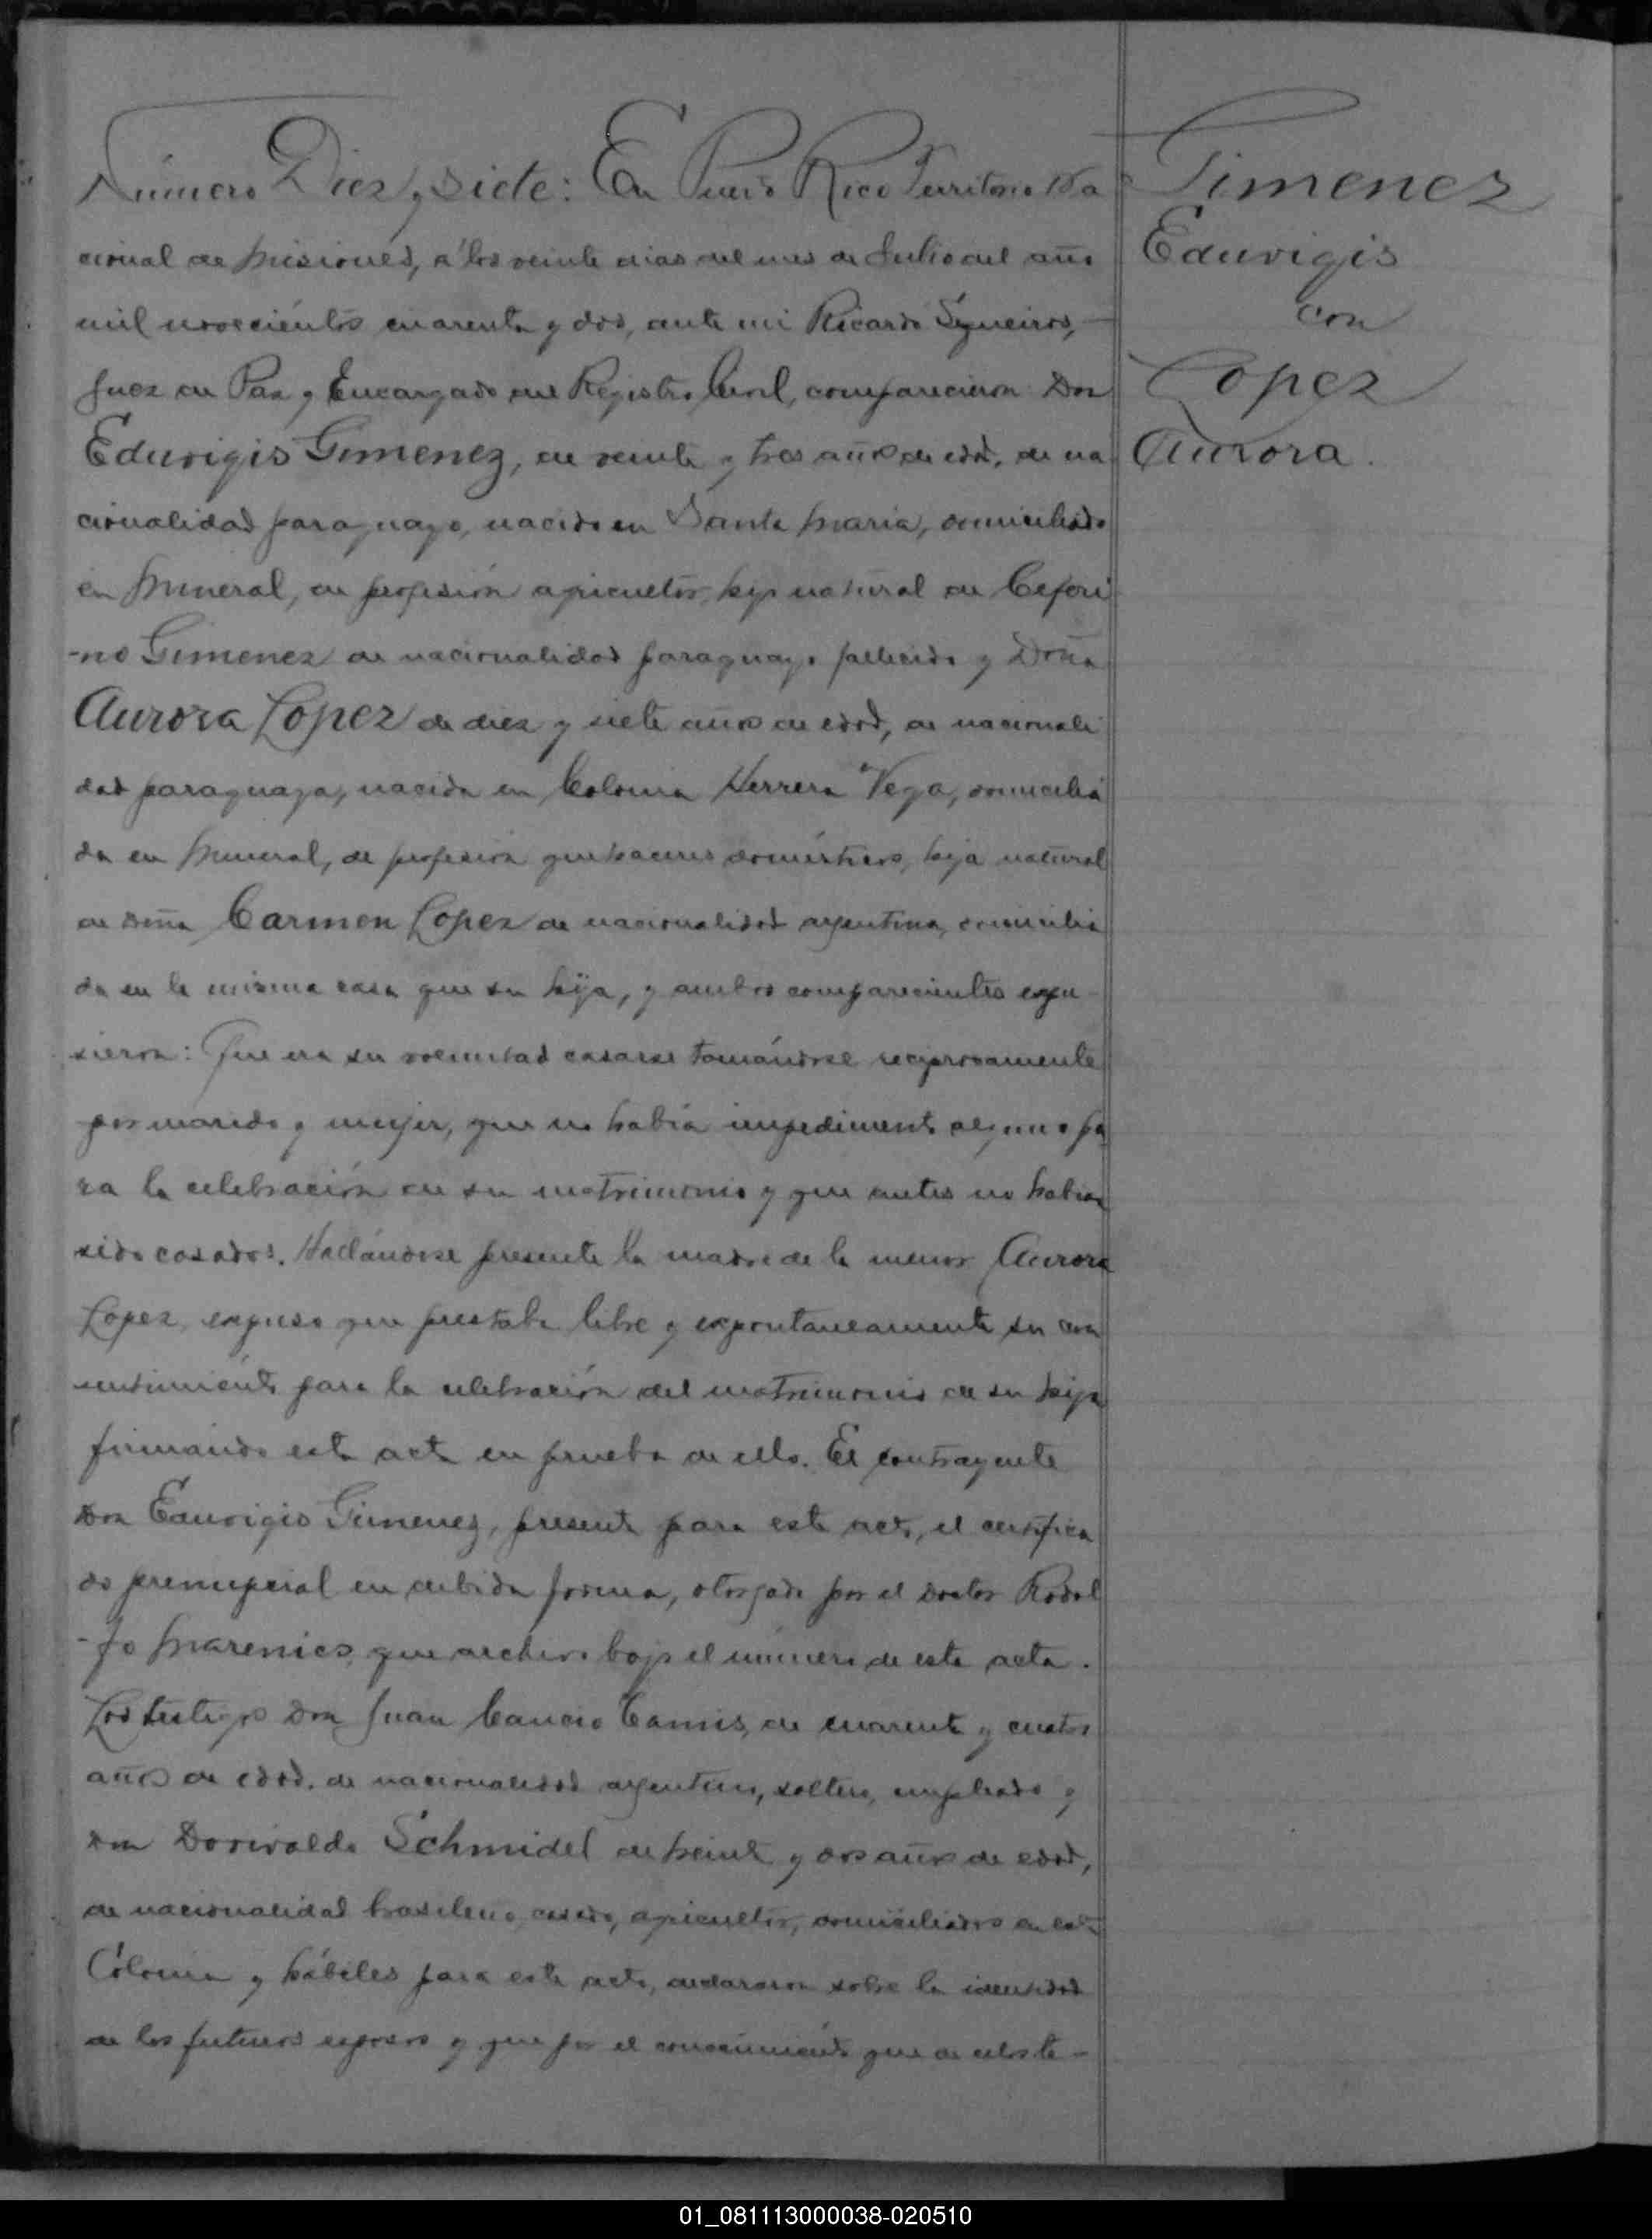 Número Diez y siete: En Puerto Rico Territorio Na
cional de Misiones, a los veinte dias del mes de Julio del año
mil novecientos cuarenta y dos, ante mi Ricardo Sigueiros,
Juez de Paz y Encargado del Registro Civil, comparecieron Don
Eduvigis Gimenez, de veinte y tres años de edad, de na
cionalidad paraguayo, nacido en Santa Maria, domiciliado
en Mineral, de profesión agricultor, hijo natural de Ceferi
-no Gimenez de nacionalidad paraguayo fallecido y Doña
Aurora Lopez de diez y siete años de edad, de nacionali
dad paraguaya, nacida en Colonia Herrera Vega, domicilia
da en Mineral, de profesión quehaceres domésticos, hija natural
de Doña Carmen Lopez de nacionalidad argentina, domicilia
da en la misma casa que su hija, y ambos comparecientes expu-
sieron: Que era su voluntad casarse tomándose reciprocamente
por marido y mujer, que no habia impedimento alguno pa
ra la celebración de su matrimonio y que antes no habian
sido casados. Hallándose presente la madre de la menor Aurora
Lopez, expuso que prestaba libre y expontaneamente su con
sentimiento para la celebración del matrimonio de su hija
firmando esta acta en prueba de ello. El contrayente
Don Eduvigis Gimenez, presenta para este acto, el certifica
do prenupcial en debida forma, otorgado por el Doctor Rodol
-fo Marenics, que archivo bajo el número de esta acta.
Los testigos Don Juan Cancio Camis, de cuarenta y cuatro
años de edad, de nacionalidad argentino, soltero, empleado y
Don Dorivaldo Schmidel de veinte y dos años de edad,
de nacionalidad brasileno, casado, agricultor, domiciliados en esta
Colonia y hábiles para este acto, declararon sobre la identidad
de los futuros esposos y que por el conocimiento que de ellos te-
Gimenez
Eduvigis
con
Lopez
Aurora.
01_081113000038-020510